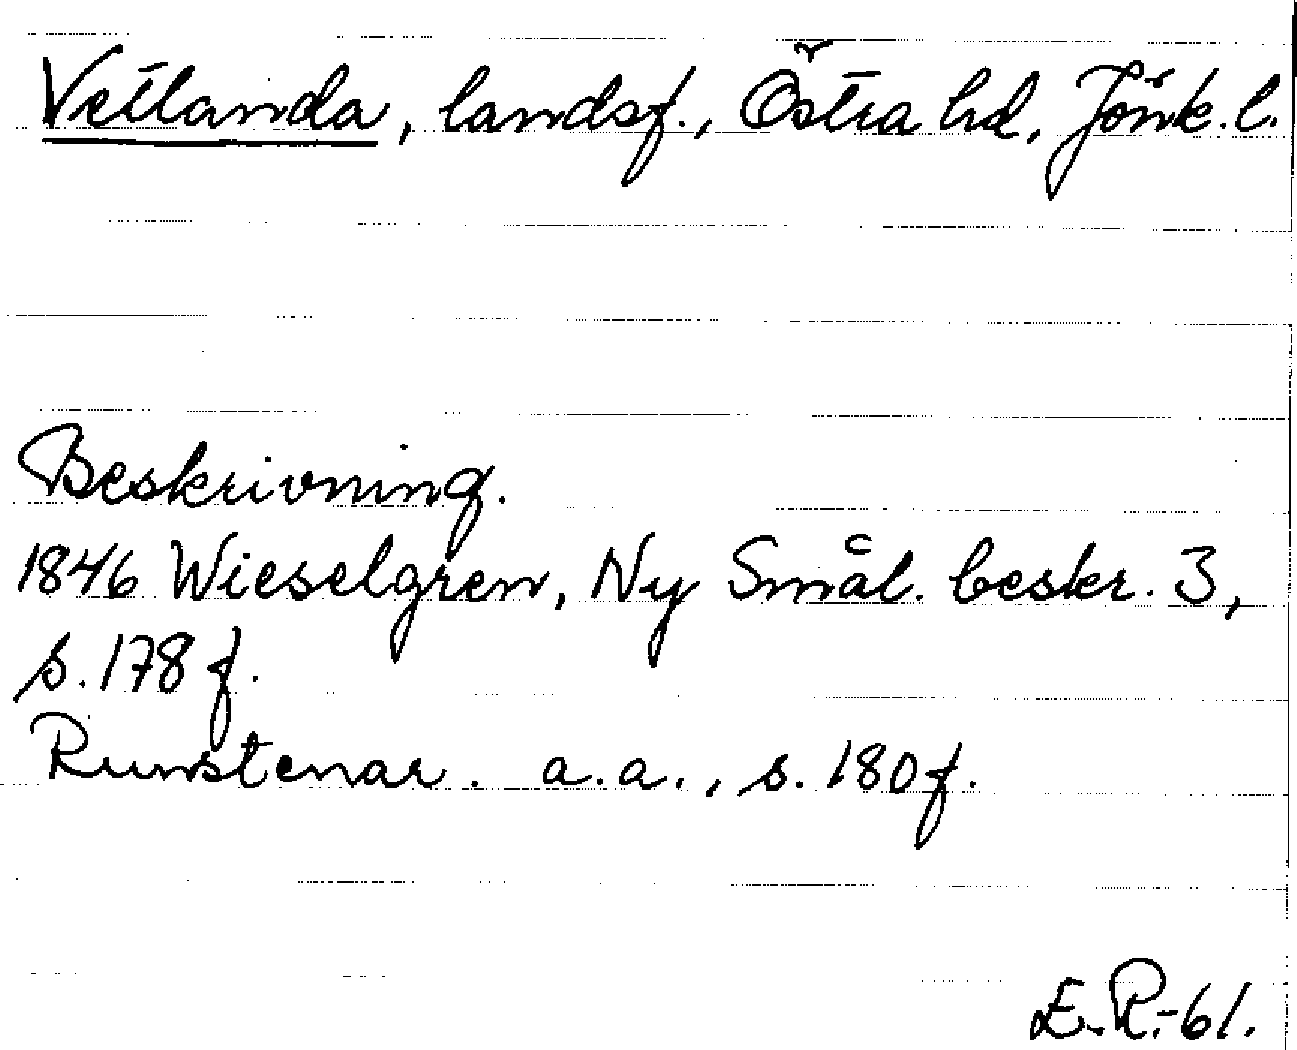 Vetlanda, landsf., Östra hd, Jönk. l.
Beskrivning.
1846 Wieselgren, Ny Smål. beskr. 3,
s. 178 f.
Runstenar. a.a., s. 180 f.
E.R.-61.